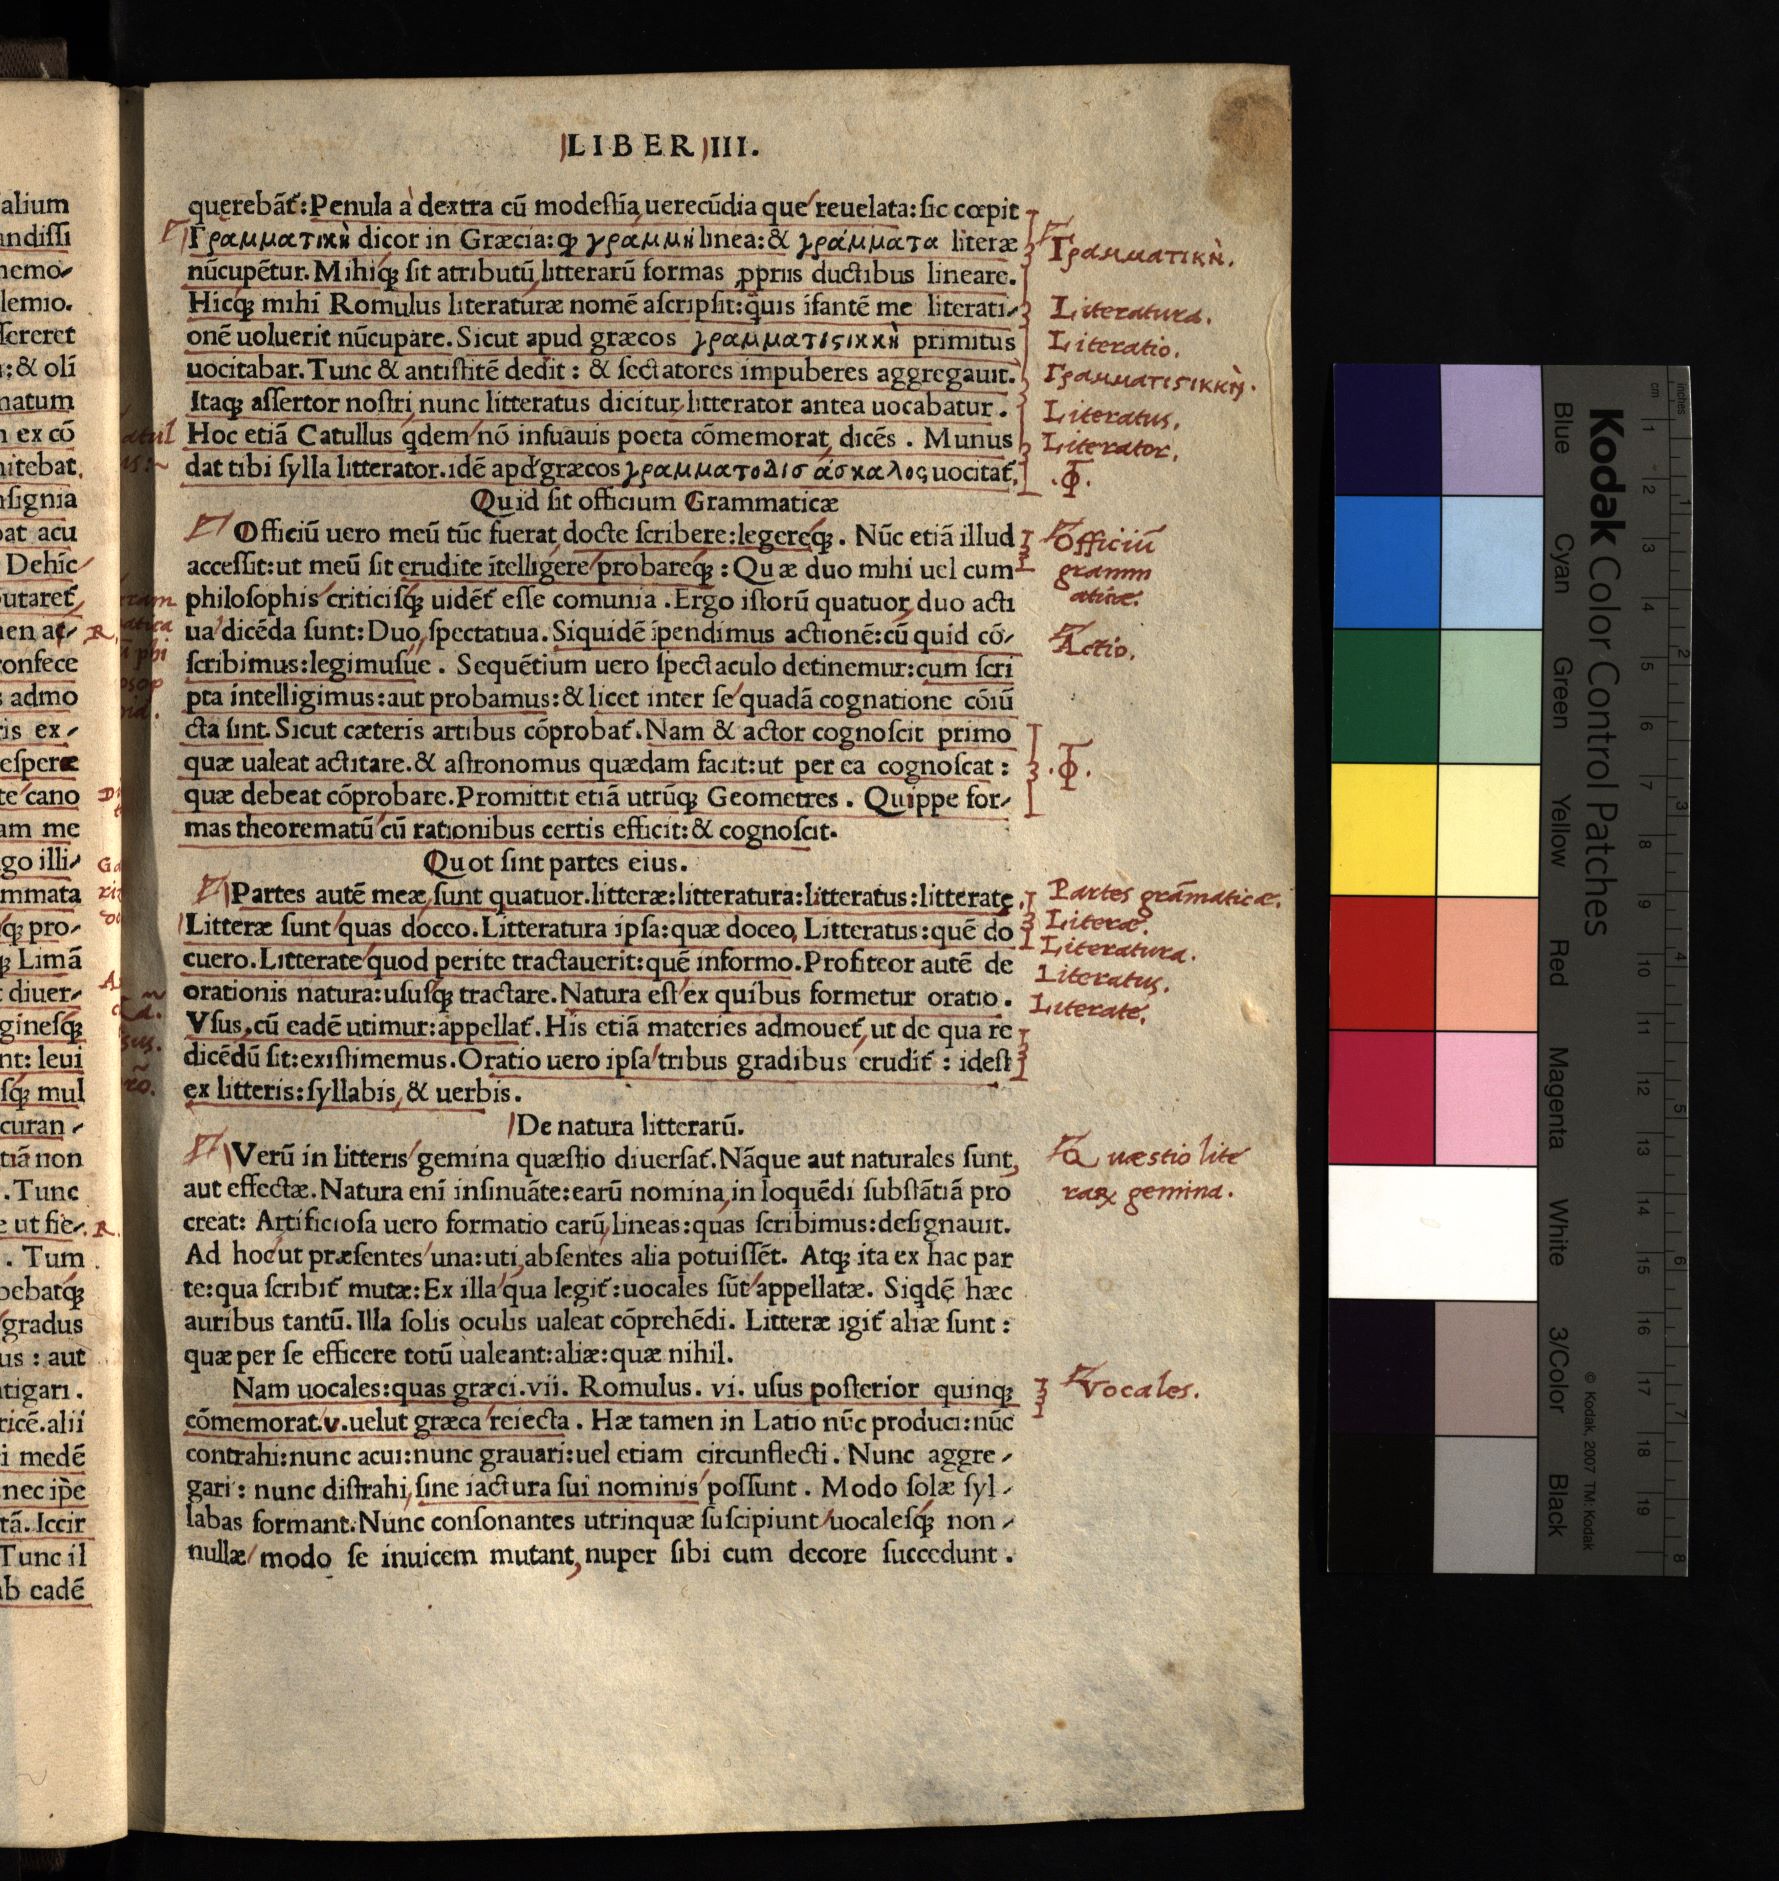 LIBER III.
querebāt᷑: Penula à dextra cū modeſtia, uerecūdia que reuelata: ſic cœpit
Γραμματικὴ dicor in Græcia: ꝙ γραμμὴ linea: & γράμματα literæ
nūcupētur. Mihiq; ſit atributū, litterarū formas ꝓpriis ductibus lineare.
Hicq; mihi Romulus literaturæ nomē aſcripſit: q̄uis īfantē me literati-
onē uoluerit nūcupare. Sicut apud græcos γραμματιςικκὴ primitus
uocitabar. Tunc & antiſtitē dedit: & ſectatores impuberes aggregauit.
Itaq; aſſertor noſtri, nunc litteratus dicitur, litterator antea uocabatur.
Hoc etiā Catullus qdem nō inſuauis poeta cōmemorat, dicēs. Munus
dat tibi ſylla litterator. idē apd græcos γραμματοδισ άσκαλος uocitat᷑.
Quid ſit officium Grammaticæ
Officiū uero meū tūc fuerat, docte ſcribere: legereq;. Nūc etiā illud
acceſſit: ut meū ſit erudite ītelligere probareq;: Quæ duo mihi uel cum
philoſophis criticiſq; uidēt᷑ eſſe comunia. Ergo iſtorū quatuor, duo acti
ua dicēda ſunt: Duo, ſpectatiua. Siquidē īpendimus actionē: cū quid cō-
ſcribimus: legimuſue. Sequētium uero ſpectaculo detinemur: cum ſcri
pta intelligimus: aut probamus: & licet inter ſe quadā cognatione cōiū
cta ſint. Sicut cæteris artibus cōprobat᷑. Nam & actor cognoſcit primo
quæ ualeat actitare. & aſtronomus quædam facit: ut per ea cognoſcat:
quæ debeat cōprobare. Promittit etiā utrūq; Geometres. Quippe for-
mas theorematū cū rationibus certis efficit: & cognoſcit.
Quot ſint partes eius.
Partes autē meæ, ſunt quatuor. litteræ: litteratura: litteratus: litterate.
Litteræ ſunt quas doceo. Litteratura ipſa: quæ doceo, Litteratus: quē do
cuero. Litterate quod perite tractauerit: quē informo. Profiteor autē de
orationis natura: uſuſq; tractare. Natura eſt ex quibus formetur oratio.
Vſus, cū eadē utimur: appellat᷑. His etiā materies admouet᷑, ut de qua re
dicēdū ſit: exiſtimemus. Oratio uero ipſa tribus gradibus erudit᷑: ideſt
ex litteris: ſyllabis, & uerbis.
De natura litterarū.
Verū in litteris gemina quæſtio diuerſat᷑. Nāque aut naturales ſunt,
aut effectæ. Natura enī inſinuāte: earū nomina, in loquēdi ſubſtātiā pro
creat: Artificioſa uero formatio earū, lineas: quas ſcribimus: deſignauit.
Ad hoc ut præſentes una: uti, abſentes alia potuiſſēt. Atq; ita ex hac par
te: qua ſcribit᷑ mutæ: Ex illa qua legit᷑: uocales ſūt appellatæ. Siqdē hæc
auribus tantū. Illa ſolis oculis ualeat cōprehēdi. Litteræ igit᷑ aliæ ſunt:
quæ per ſe efficere totū ualeant: aliæ: quæ nihil.
Nam uocales: quas græci. vii. Romulus. vi. uſus poſterior quinq;
cōmemorat. v. uelut græca reiecta. Hæ tamen in Latio nūc produci: nūc
contrahi: nunc acui: nunc grauari: uel etiam circunflecti. Nunc aggre-
gari: nunc diſtrahi, ſine iactura ſui nominis poſſunt. Modo ſolæ ſyl-
labas formant. Nunc conſonantes utrinquæ ſuſcipiunt uocaleſq; non-
nullæ modo ſe inuicem mutant, nuper ſibi cum decore ſuccedunt.
Γραμματικὴ.
Literatura.
Literatio.
Γραμματιςικκὴ.
Literatus.
Literator.
Officiū
gramm
aticæ.
Actio.
Partes grāmaticæ.
Literæ.
Literatura.
Literatus.
Literate.
Quæstio lite
raꝝ gemina.
Vocales.
alium
andiſſi
nemo-
lemio.
ſſereret
: & oli
natum
n ex cō
nitebat
nſignia
bat acu
Dehīc
putaret᷑
confece
s admo
ris ex-
eſperæ
te cano
am me
go illi-
mmata
q; pro-
q; Limā
t diuer-
gineſq;
nt: leui
ſq; mul
curan-
tiā non
. Tunc
e ut fie-
. Tum
bebatq;
gradus
us: aut
atigari.
ricē. alii
i medē
nec ipe
tā. Iccir
Tunc il
ab eadē
Kodak Color Control Patches
Blue Cyan Green Yellow Red Magenta White 3/Color Black
© Kodak, 2007 TM: Kodak
cm 1 2 3 4 5 6 7 8 9 10 11 12 13 14 15 16 17 18 19
inches 1 2 3 4 5 6 7 8